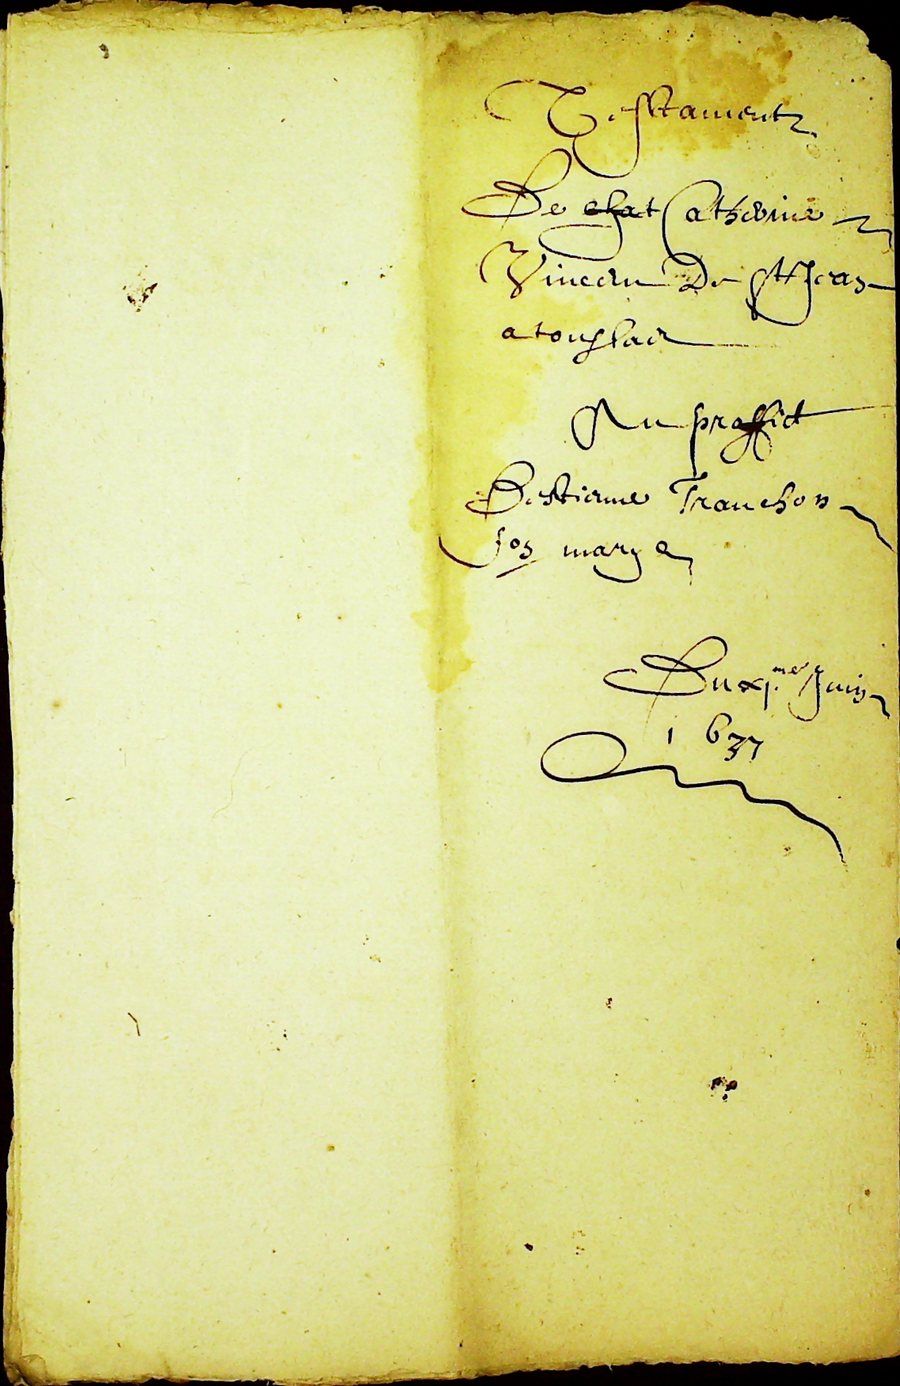 Testament
De chat Catherine
Vincen De st Jean
a touslas
Au proffict
Destienne Tranchon
son mary
Du xj.me Juin
1637